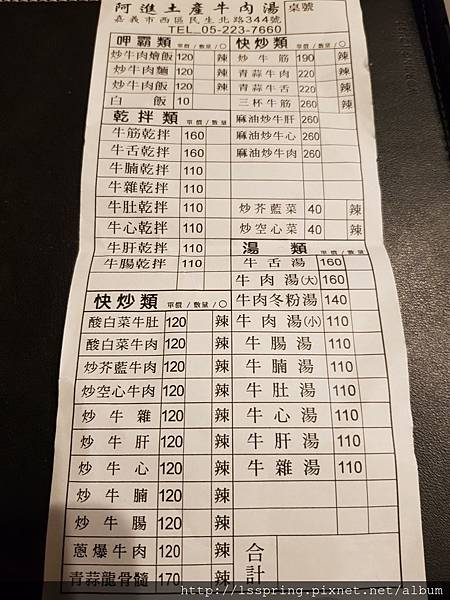 阿進土產牛肉湯 桌號
嘉義市西區民生北路344號
TEL.05-223-7660
呷霸類 單價/數量/○
炒牛肉燴飯 120 辣
炒牛肉麵 120 辣
炒牛肉飯 120 辣
白飯 10
乾拌類 單價/數量/○
牛筋乾拌 160
牛舌乾拌 160
牛腩乾拌 110
牛雜乾拌 110
牛肚乾拌 110
牛心乾拌 110
牛肝乾拌 110
牛腸乾拌 110
快炒類 單價/數量/○
炒牛筋 190 辣
青蒜牛肉 220 辣
青蒜牛舌 220 辣
三杯牛筋 260 辣
麻油炒牛肝 260
麻油炒牛心 260
麻油炒牛肉 260
炒芥藍菜 40 辣
炒空心菜 40 辣
湯類 單價/數量/○
牛舌湯 160
牛肉湯(大) 160
牛肉冬粉湯 140
牛肉湯(小) 110
牛腸湯 110
牛腩湯 110
牛肚湯 110
牛心湯 110
牛肝湯 110
牛雜湯 110
快炒類 單價/數量/○
酸白菜牛肚 120 辣
酸白菜牛肉 120 辣
炒芥藍牛肉 120 辣
炒空心牛肉 120 辣
炒牛雜 120 辣
炒牛肝 120 辣
炒牛心 120 辣
炒牛腩 120 辣
炒牛腸 120 辣
蔥爆牛肉 120 辣
青蒜龍骨髓 170 辣
合計
http://lsspring.pixnet.net/album